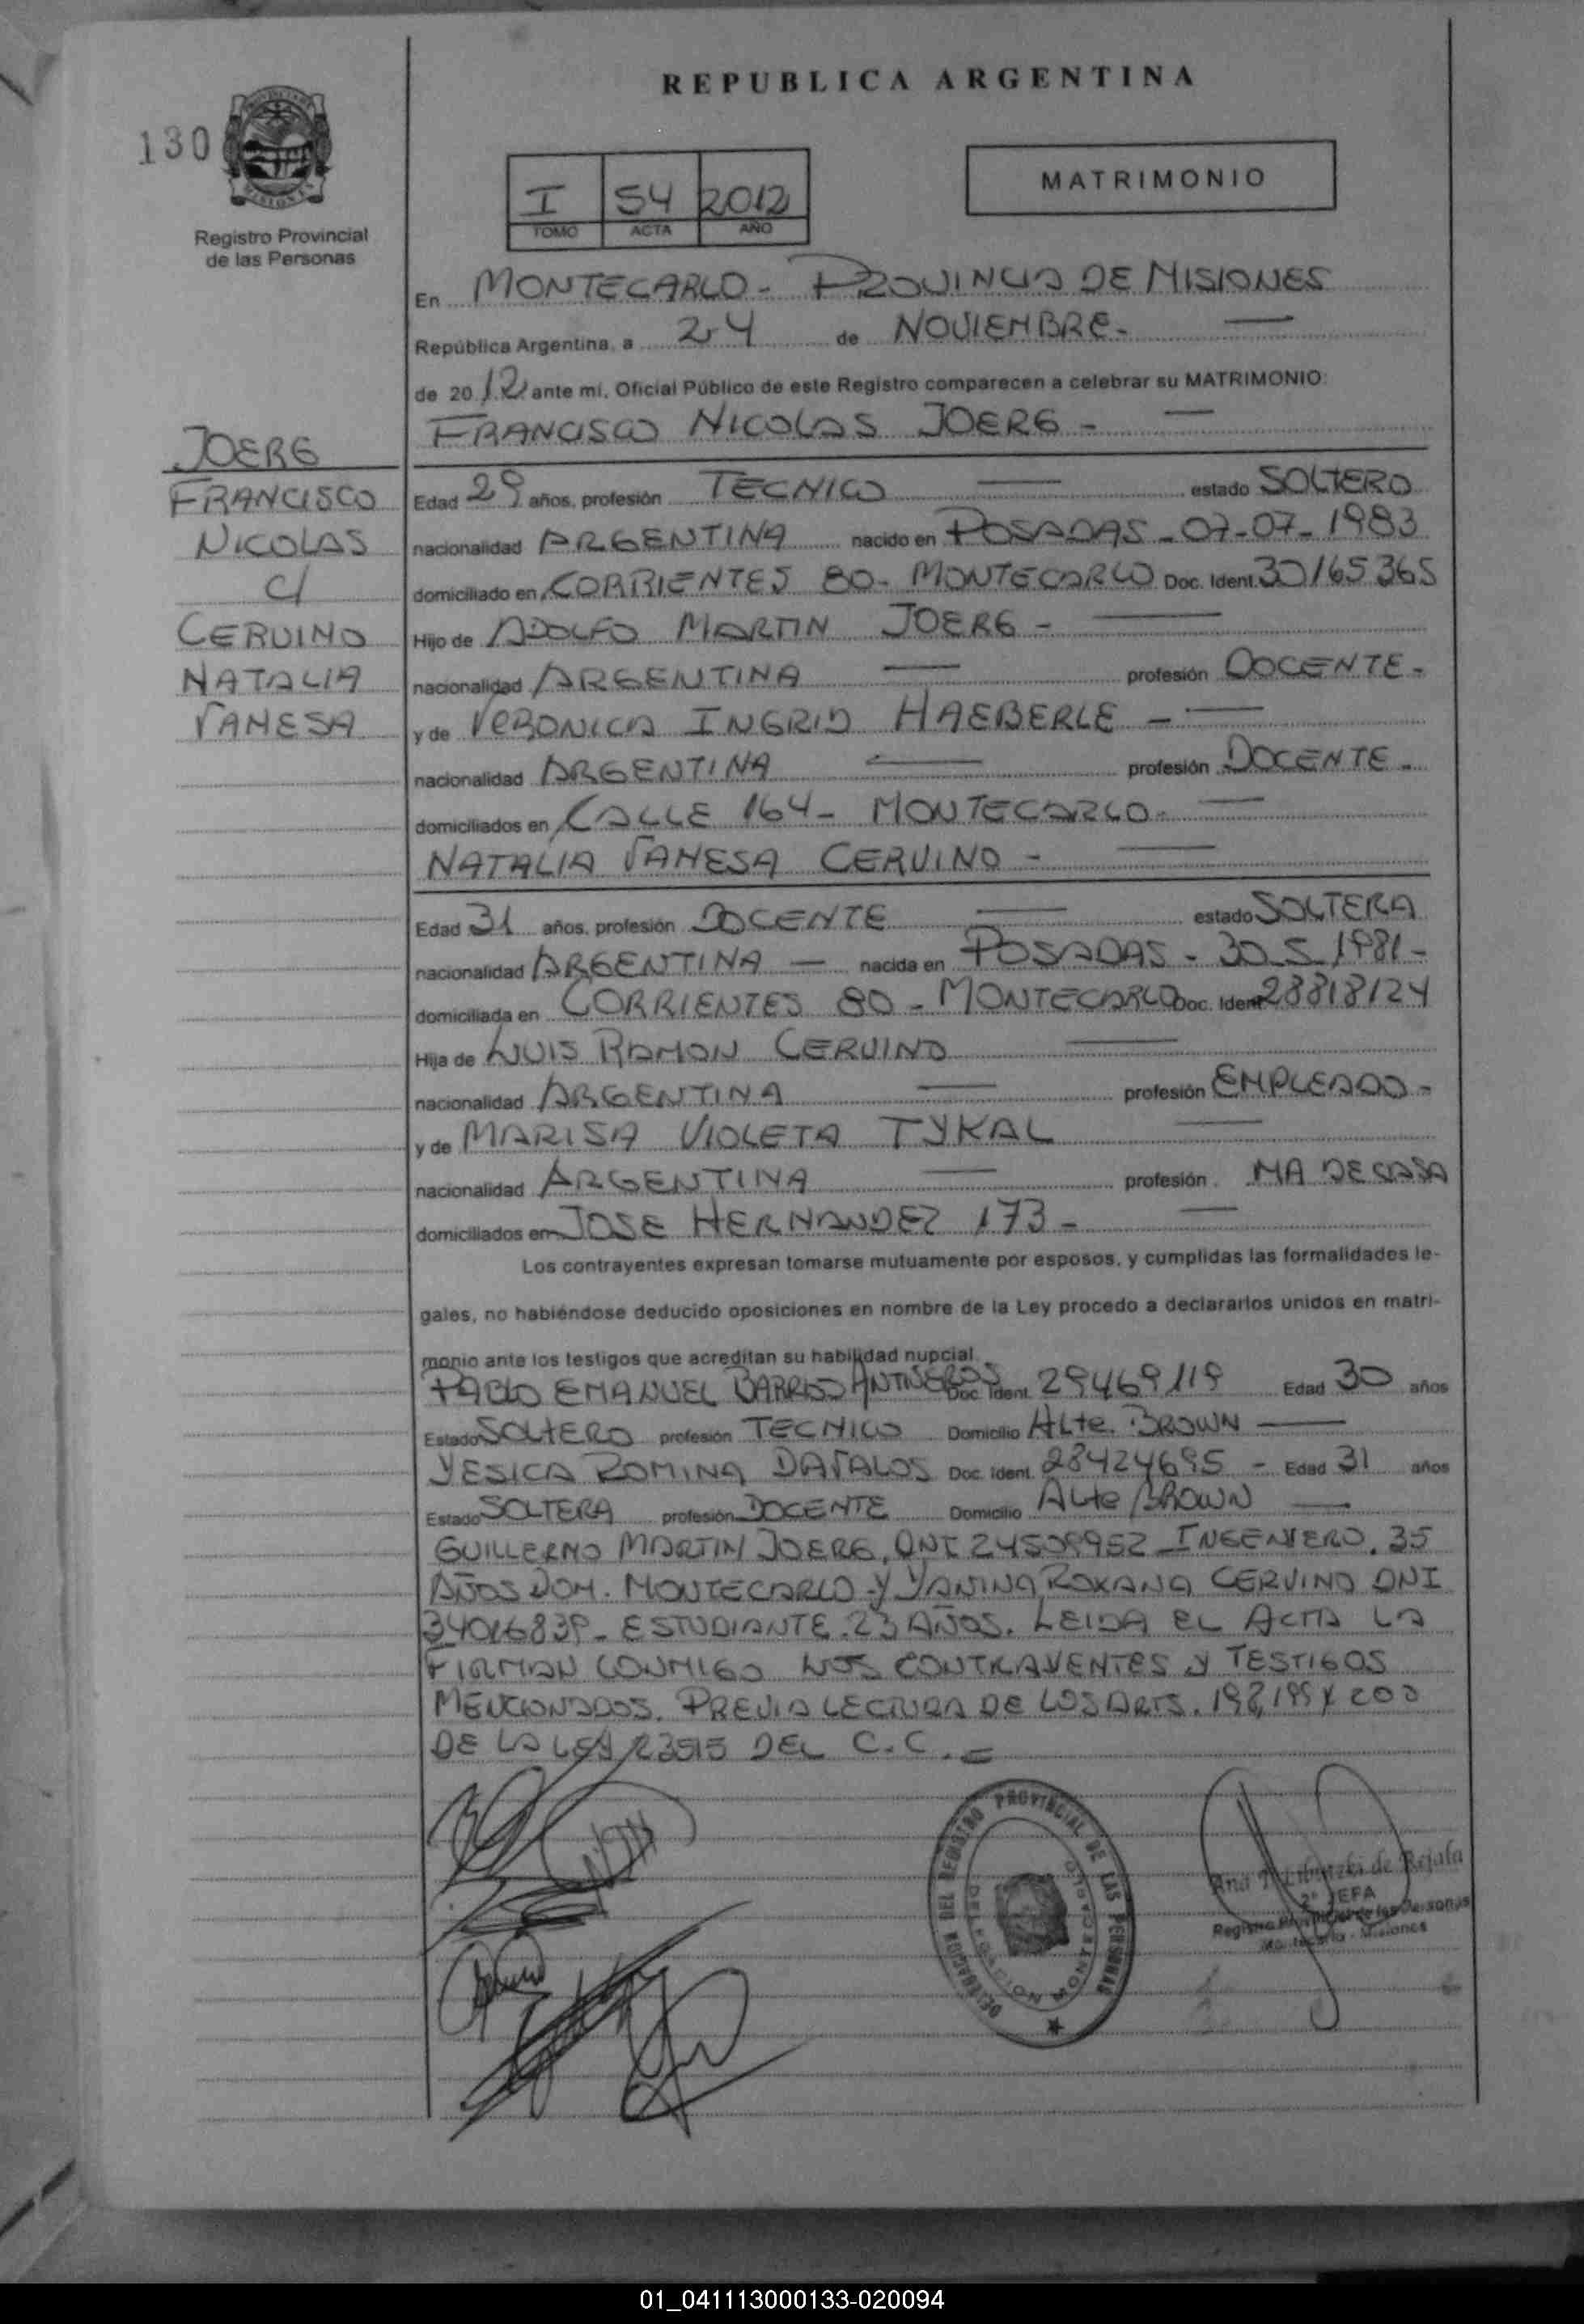 REPUBLICA ARGENTINA
130
PROVINCIA DE MISIONES
Registro Provincial
de las Personas
I 54 2012
TOMO ACTA AÑO
MATRIMONIO
En MONTECARLO - PROVINCIA DE MISIONES
República Argentina, a 24 de NOVIEMBRE -
de 2012 ante mi, Oficial Público de este Registro comparecen a celebrar su MATRIMONIO:
FRANCISCO NICOLAS JOERG -
JOERG
FRANCISCO
NICOLAS
C/
CERVINO
NATALIA
VANESA
Edad 29 años, profesión TECNICO estado SOLTERO
nacionalidad ARGENTINA nacido en POSADAS - 07-07-1983
domiciliado en CORRIENTES 80 - MONTECARLO Doc. Ident. 30165365
Hijo de ADOLFO MARTIN JOERG -
nacionalidad ARGENTINA profesión DOCENTE -
y de VERONICA INGRID HAEBERLE -
nacionalidad ARGENTINA profesión DOCENTE -
domiciliados en CALLE 164 - MONTECARLO -
NATALIA VANESA CERVINO -
Edad 31 años, profesión DOCENTE estado SOLTERA
nacionalidad ARGENTINA - nacida en POSADAS - 30-5-1981 -
domiciliada en CORRIENTES 80 - MONTECARLO Doc. Ident. 28818124
Hija de LUIS RAMON CERVINO
nacionalidad ARGENTINA profesión EMPLEADO -
y de MARISA VIOLETA TYKAL
nacionalidad ARGENTINA profesión MA DE CASA
domiciliados en JOSE HERNANDEZ 173 -
Los contrayentes expresan tomarse mutuamente por esposos, y cumplidas las formalidades le-
gales, no habiéndose deducido oposiciones en nombre de la Ley procedo a declararlos unidos en matri-
monio ante los testigos que acreditan su habilidad nupcial.
PABLO EMANUEL BARRIOS Doc. Ident. 29469119 Edad 30 años
Estado SOLTERO profesión TECNICO Domicilio ALte. BROWN
YESICA ROMINA DAVALOS Doc. Ident. 28424695 - Edad 31 años
Estado SOLTERA profesión DOCENTE Domicilio ALte BROWN
GUILLERMO MARTIN JOERG, DNI 24509952 INGENIERO. 35
AÑOS DOM. MONTECARLO - Y YANINA ROXANA CERVINO DNI
34016839 - ESTUDIANTE - 23 AÑOS. LEIDA EL ACTA LA
FIRMAN CONMIGO LOS CONTRAYENTES Y TESTIGOS
MENCIONADOS. PREVIA LECTURA DE LOS ARTS. 198, 199 Y 200
DE LA LEY 23515 DEL C.C. =
DELEGACION DEL REGISTRO PROVINCIAL DE LAS PERSONAS
MONTECARLO
de Rejala
2ª JEFA
Registro Provincial de las Personas
Montecarlo - Misiones
01_041113000133-020094